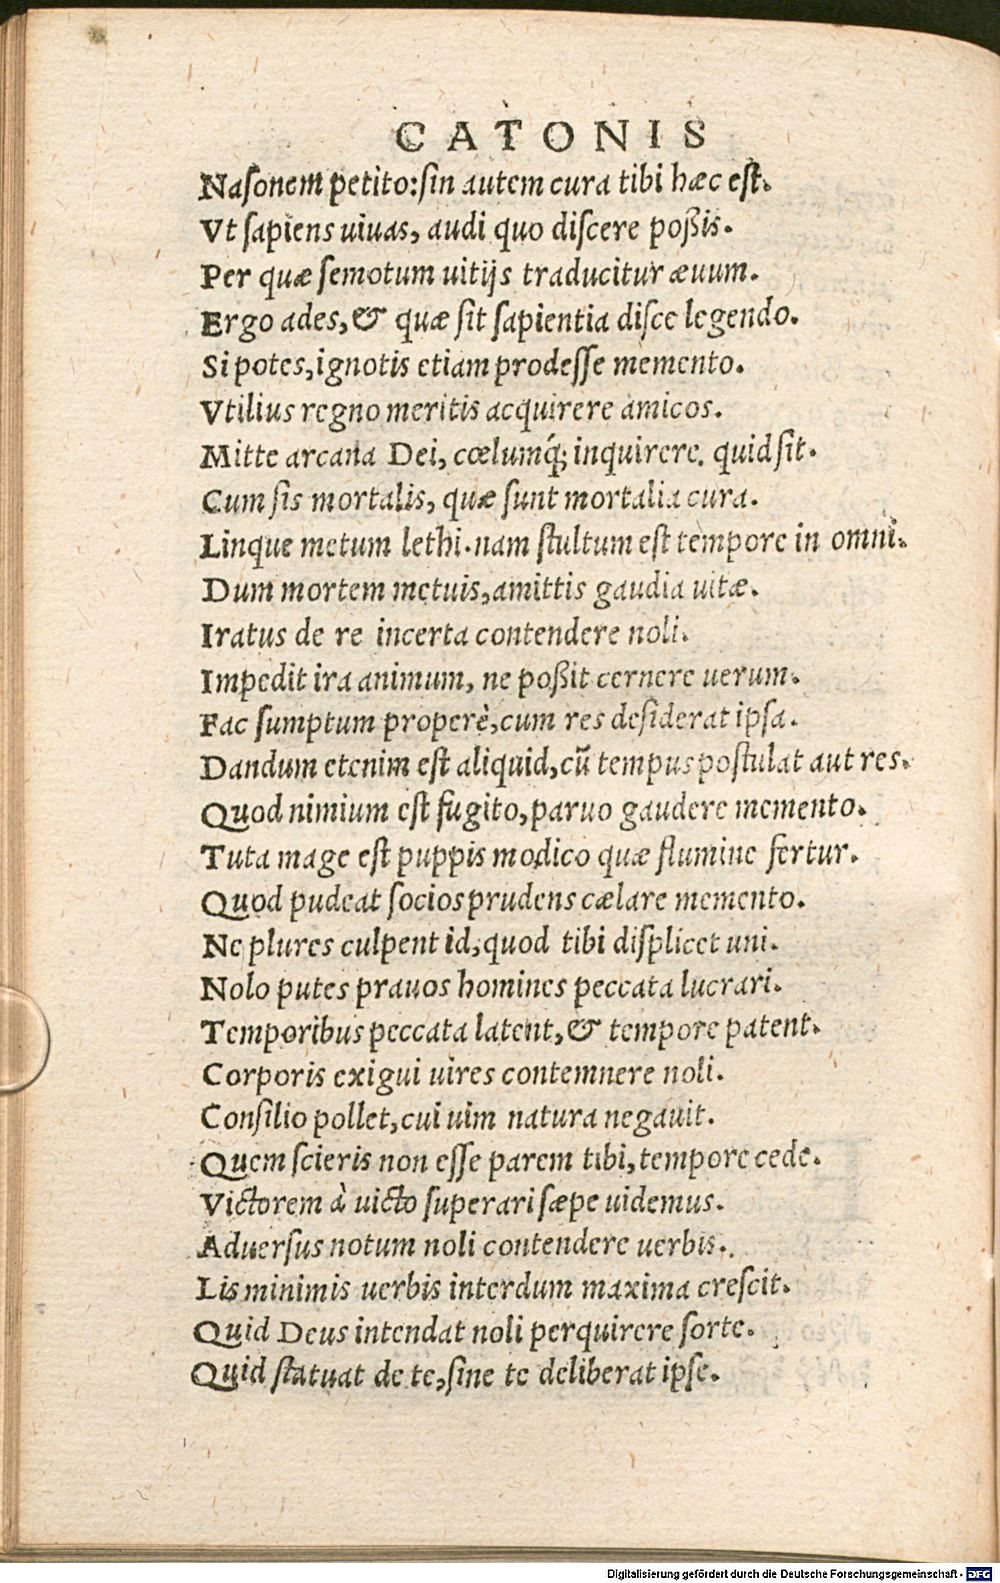 CATONIS
Nasonem petito: sin autem cura tibi hæc est.
Vt sapiens uiuas, audi quo discere poßis.
Per quæ semotum uitijs traducitur æuum.
Ergo ades, & quæ sit sapientia disce legendo.
Si potes, ignotis etiam prodesse memento.
Vtilius regno meritis acquirere amicos.
Mitte arcana Dei, cœlumq́; inquirere. quid sit.
Cum sis mortalis, quæ sunt mortalia cura.
Linque metum lethi. nam stultum est tempore in omni.
Dum mortem metuis, amittis gaudia uitæ.
Iratus de re incerta contendere noli.
Impedit ira animum, ne poßit cernere uerum.
Fac sumptum properè, cum res desiderat ipsa.
Dandum etenim est aliquid, cũ tempus postulat aut res.
Quod nimium est fugito, paruo gaudere memento.
Tuta mage est puppis modico quæ flumine fertur.
Quod pudeat socios prudens cælare memento.
Ne plures culpent id, quod tibi displicet uni.
Nolo putes prauos homines peccata lucrari.
Temporibus peccata latent, & tempore patent.
Corporis exigui uires contemnere noli.
Consilio pollet, cui uim natura negauit.
Quem scieris non esse parem tibi, tempore cede.
Victorem à uicto superari sæpe uidemus.
Aduersus notum noli contendere uerbis.
Lis minimis uerbis interdum maxima crescit.
Quid Deus intendat noli perquirere sorte.
Quid statuat de te, sine te deliberat ipse.
Digitalisierung gefördert durch die Deutsche Forschungsgemeinschaft - DFG